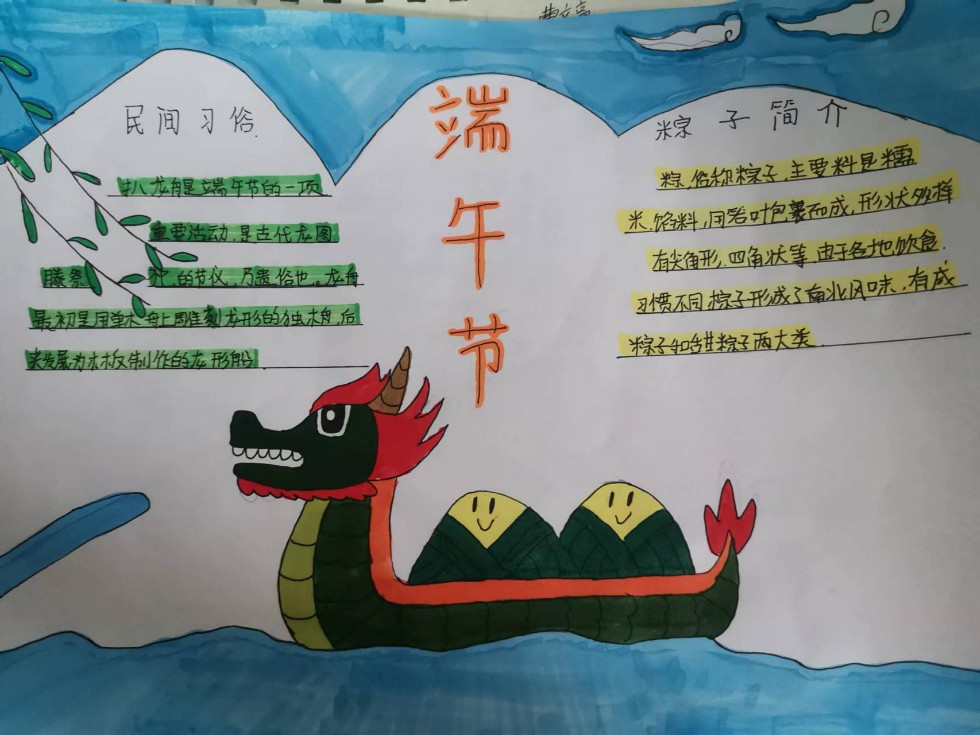 民间习俗
扒龙舟是端午节的一项
重要活动,是古代龙图
腾祭祀的节仪,乃遗俗也。龙舟
最初是用单木舟上雕刻龙形的独木舟,后
来发展为木板制作的龙形船
端午节
粽子简介
粽,俗称粽子,主要料是糯
米、馅料,用箬叶包裹而成,形状多样
有尖角形,四角状等.由于各地饮食
习惯不同,粽子形成了南北风味,有咸
粽子和甜粽子两大类